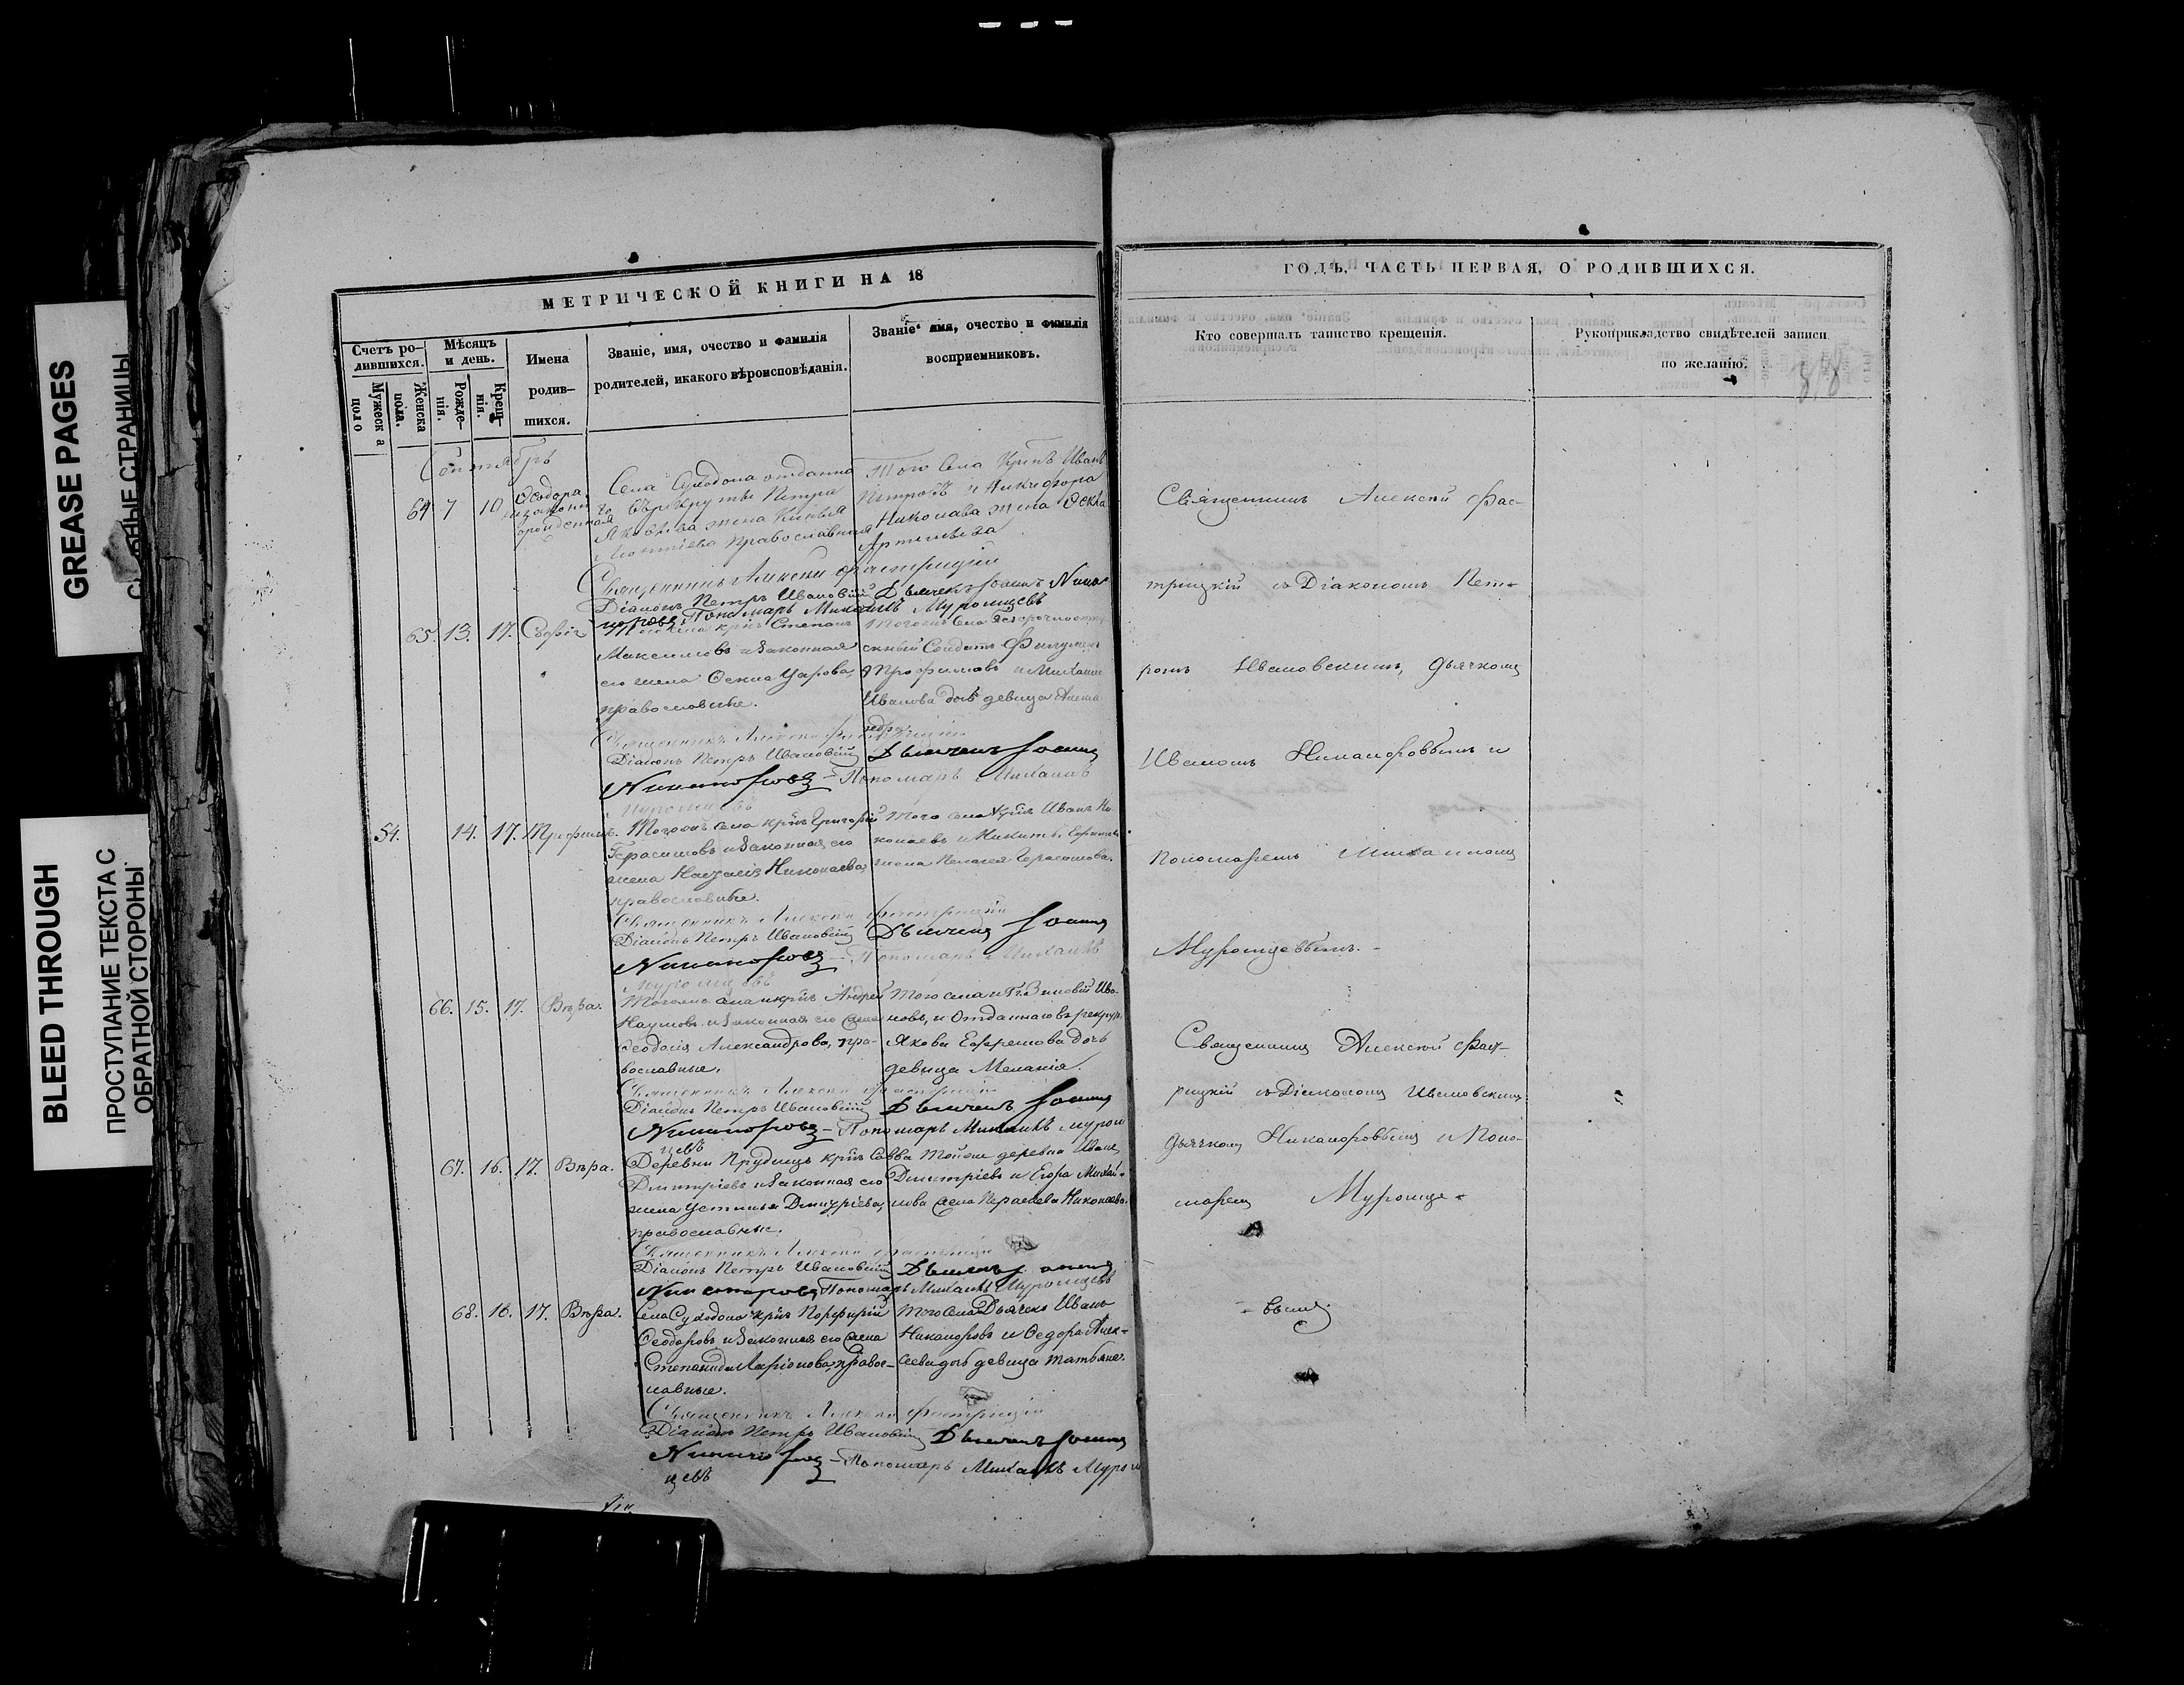 GREASE PAGES
СТРАНИЦЫ
BLEED THROUGH
ПРОСТУПАНИЕ ТЕКСТА С
ОБРАТНОЙ СТОРОНЫ
МЕТРИЧЕСКОЙ КНИГИ НА 18
Счетъ ро-
дившихся.
Мужеска
пола
Женска
пола.
Мѣсяцъ
и день.
Рожде-
нія.
Крещ-
нія.
Имена
родив-
шихся.
Званіе, имя, очество и фамилія
родителей, икакого вѣроисповѣданія.
Званіе имя, очество и фамилія
восприемниковъ.
Сентябрь
64 7 10 Ѳеодора
Села Суходола отданна
го въ рекруты Петра
Яковлева жена
Леонтіева православная
Того Села Крнъ Иванъ
Петровъ и Никифора
Николаева жена Ѳекла
Артемьева
Священникъ Алексѣй Фастрицкій
Діаконъ Петръ Ивановскій Дьячекъ Іоаннъ Никано
ровъ Пономарь Михаилъ Муромцевъ
65. 13. 17. Софія
крнъ Степанъ
Максимовъ изаконная
его жена Ѳекла Уарова,
православные.
Тогожъ Села
Солдатъ
Трофимовъ и Михаила
Иванова дочь девица Алекса
ндра.
Священникъ Алексѣй Фастрицкій
Діаконъ Петръ Ивановскій Дьячекъ Іоаннъ
Никаноровъ – Пономарь Михаилъ
Муромцевъ
54. 14. 17. Трофимъ.
Тогожъ села крнъ Григорій
Герасимовъ изаконная его
жена Наталія Николаева,
православные.
Того села Крнъ Иванъ Ни-
колаевъ и Никиты
жена Пелагея Герасимова.
Священникъ Алексѣй Фастрицкій
Діаконъ Петръ Ивановскій Дьячекъ Іоаннъ
Никаноровъ – Пономарь Михаилъ
Муромцевъ
66. 15. 17. Вѣра.
Тогожъ села крнъ Андрей
Наумовъ изаконная его жена
Ѳеодосія Александрова, пра-
вославные.
Того села Зиновій Ива-
новъ, и Отданнаго въ рекруты
Якова Ефремова дочь
девица Меланія.
Священникъ Алексѣй Фастрицкій
Діаконъ Петръ Ивановскій Дьячекъ Іоаннъ
Никаноровъ – Пономарь Михаилъ Муром
цевъ
67. 16. 17. Вѣра.
Деревни Прудищъ крнъ Савва
Дмитріевъ изаконная его
жена Устинья Дмитріева,
православные.
Тойже деревни Иванъ
Дмитріевъ и Егора Михай-
лова жена Параскева Николаева.
Священникъ Алексѣй Фастрицкій
Діаконъ Петръ Ивановскій Дьячекъ Іоаннъ
Никаноровъ Пономарь Михаилъ Муромцевъ
68. 16. 17. Вѣра.
Села Суходола крнъ Порфирій
Ѳеодоровъ изаконная его жена
Степанида Ларіонова, правос-
лавные.
Того села Дьячекъ Иванъ
Никаноровъ и Ѳедора Алек-
сеева дочь девица Татьяна.
Священникъ Алексѣй Фастрицкій
Діаконъ Петръ Ивановскій Дьячекъ Іоаннъ
Никаноровъ – Пономарь Михаилъ Муром
цевъ
ГОДЪ, ЧАСТЬ ПЕРВАЯ, О РОДИВШИХСЯ.
Кто совершалъ таинство крещенія.
Рукоприкладство свидѣтелей записи
по желанію.
Священникъ Алексѣй Фас-
трицкій съ Діакономъ Пет-
ромъ Ивановскимъ, дьячкомъ
Иваномъ Никаноровымъ и
Пономаремъ Михаиломъ
Муромцевымъ. –
Священникъ Алексѣй Фаст-
рицкій съ Діакономъ Ивановскимъ
дьячкомъ Никаноровымъ и Поно-
маремъ Муромце-
- вымъ.